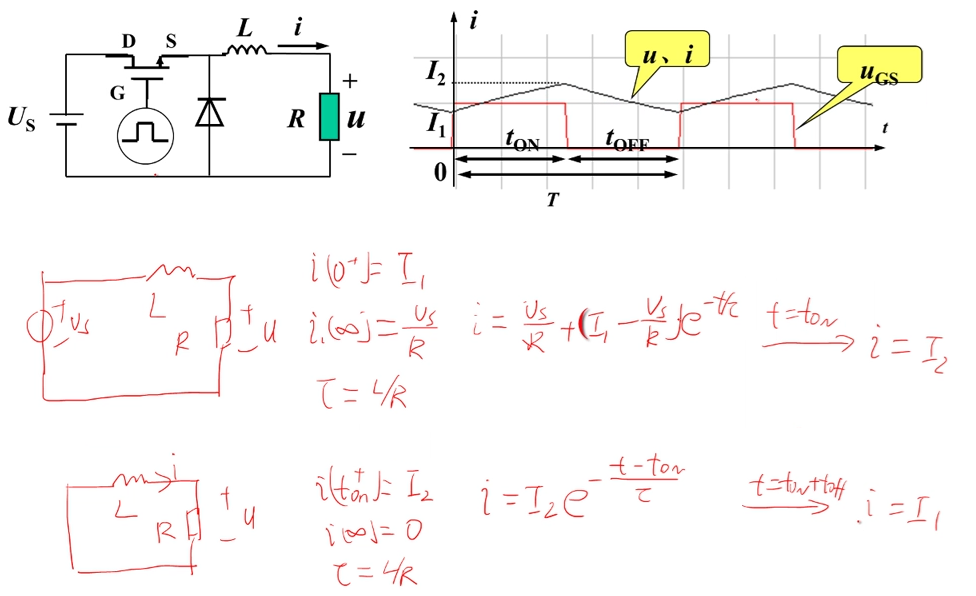 D S L i
G
U_S R + u −
i
I_2 u、i u_GS
I_1 t_ON t_OFF t
0
T
+ U_S − L R + u −
i(0⁺)=I_1
i(∞)=U_S/R i=U_S/R+(I_1−U_S/R)e^{−t/τ} t=t_on → i=I_2
τ=L/R
i L R + u −
i(t_on⁺)=I_2
i(∞)=0 i=I_2e^{−(t−t_on)/τ} t=t_on+t_off → i=I_1
τ=L/R